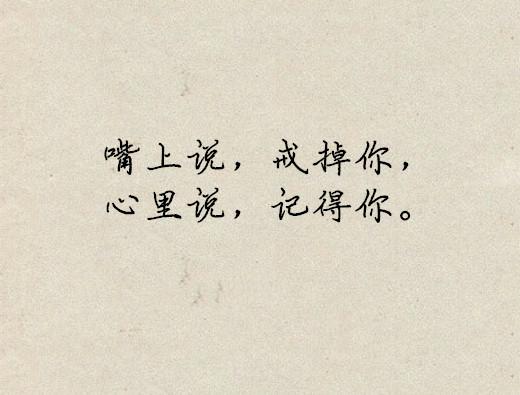 嘴上说，戒掉你，
心里说，记得你。